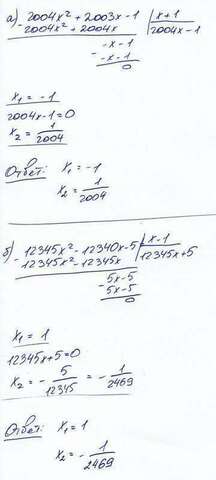 а) 2004x² + 2003x - 1 | x + 1
- 2004x² + 2004x | 2004x - 1
- -x - 1
-x - 1
0
x₁ = -1
2004x - 1 = 0
x₂ = 1/2004
Ответ: x₁ = -1
x₂ = 1/2004
б) 12345x² - 12340x - 5 | x - 1
- 12345x² - 12345x | 12345x + 5
- 5x - 5
5x - 5
0
x₁ = 1
12345x + 5 = 0
x₂ = - 5/12345 = - 1/2469
Ответ: x₁ = 1
x₂ = - 1/2469